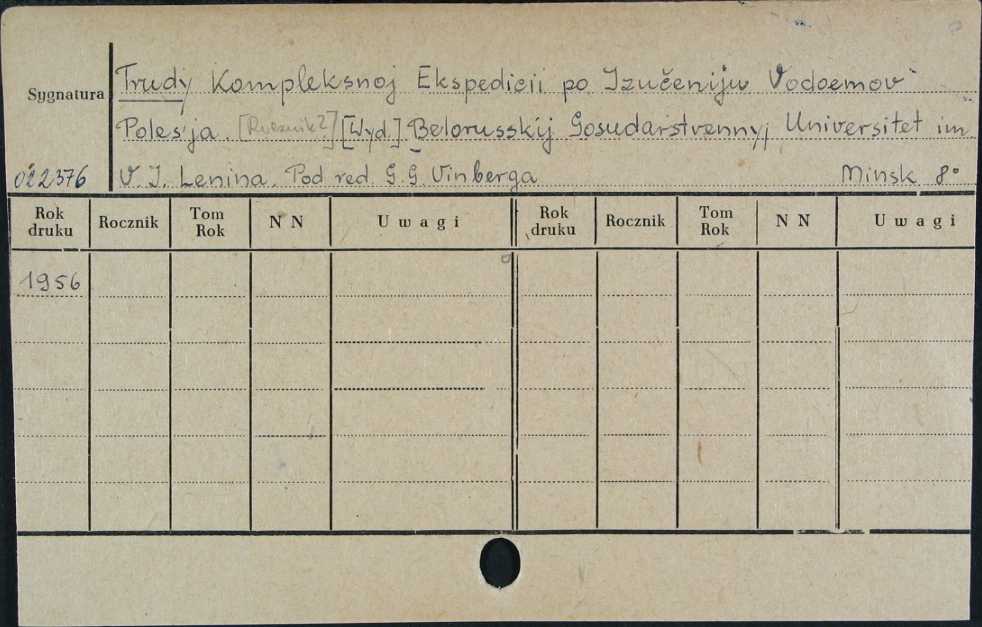 Trudy Kompleksnoj Ekspedicii po Izučeniju Vodoemov
Sygnatura
Poles'ja. [Rocznik?] [Wyd.] Belorusskij Gosudarstvennyj Universitet im
022376 V. I. Lenina. Pod red. G. G. Vinberga Minsk 8°
Rok druku Rocznik Tom Rok N N Uwagi Rok druku Rocznik Tom Rok N N Uwagi
1956